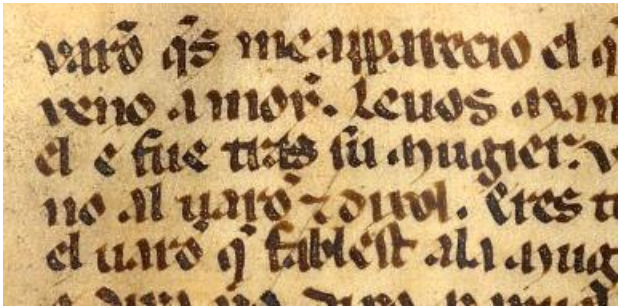 varõ q̃s me apparecio el q
veno a mor̃. Leuos man
el e fue tras su mugier. v
no al uarõ ⁊ dixol. Eres tu
el uarõ q̃ fablest ala mug